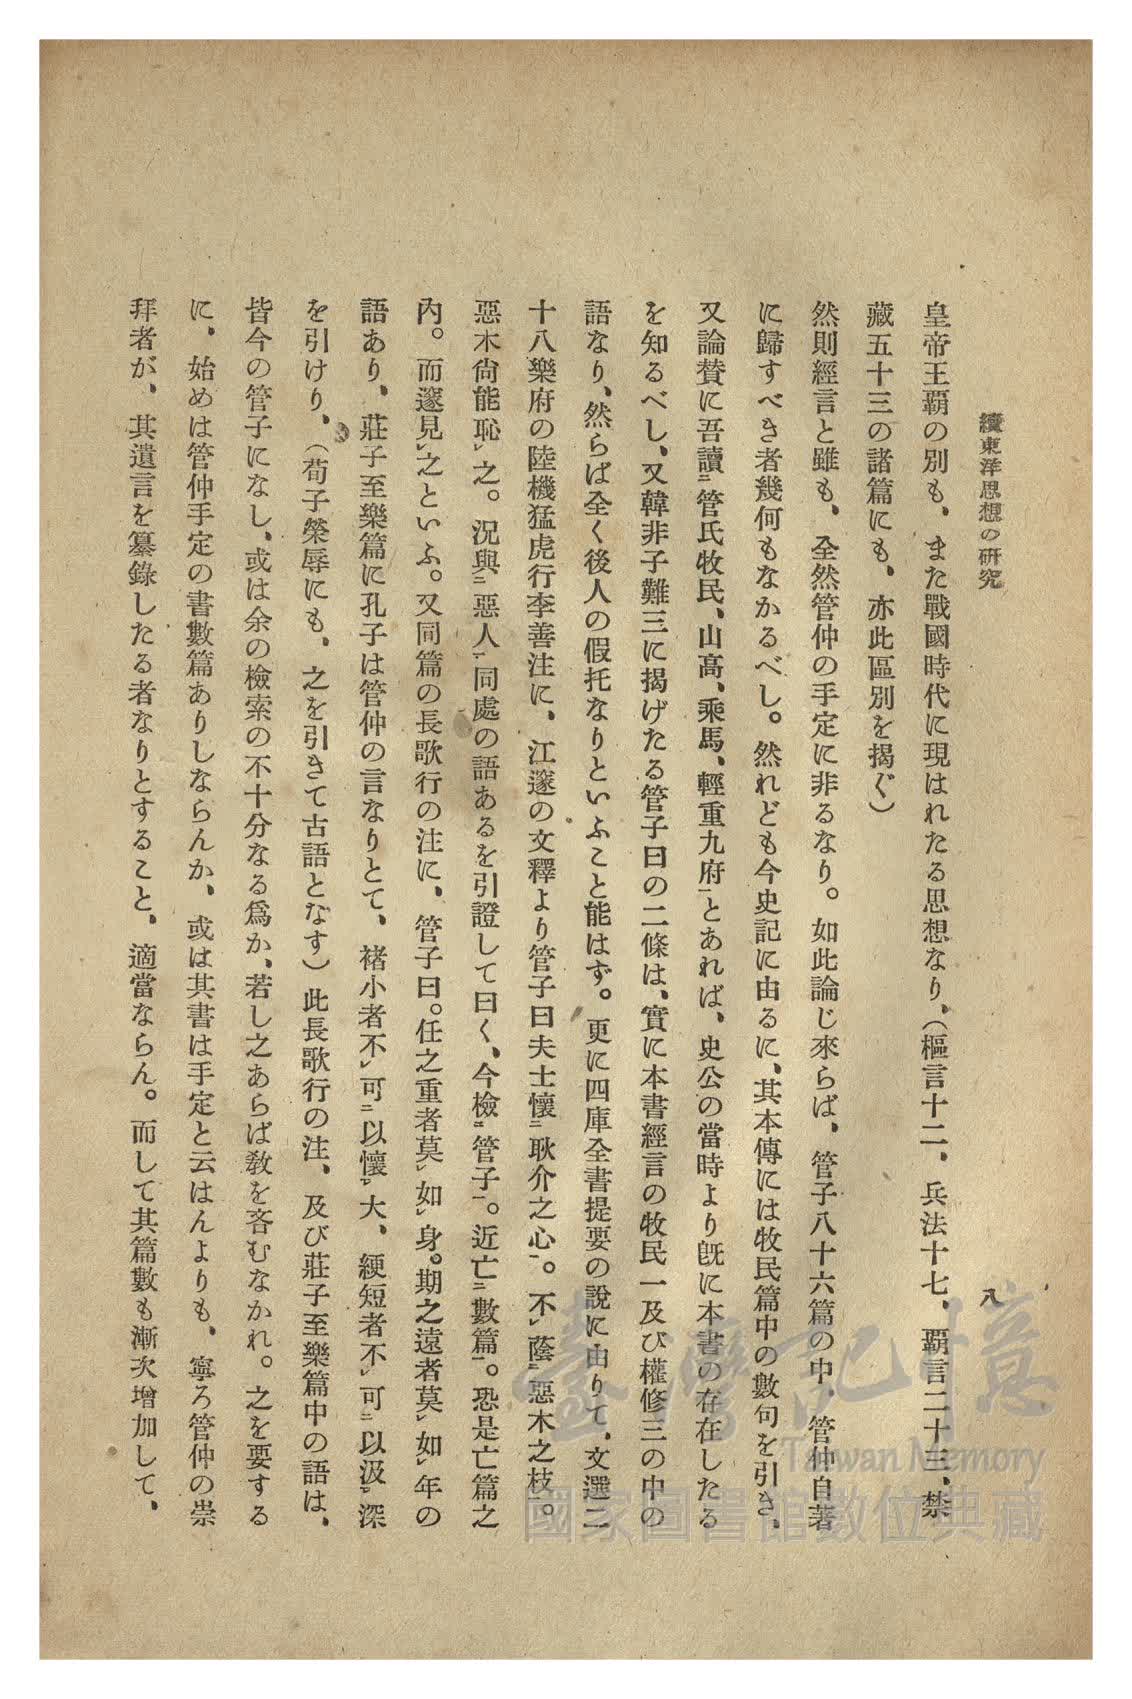 續東洋思想の研究
八
皇帝王覇の別も、また戰國時代に現はれたる思想なり、（樞言十二、兵法十七、覇言二十三、禁
藏五十三の諸篇にも、亦此區別を揭ぐ）
然則經言と雖も、全然管仲の手定に非るなり。如此論じ來らば、管子八十六篇の中、管仲自著
に歸すべき者幾何もなかるべし。然れども今史記に由るに、其本傳には牧民篇中の數句を引き、
又論賛に吾讀二管氏牧民、山高、乘馬、輕重九府一とあれば、史公の當時より旣に本書の存在したる
を知るべし、又韓非子難三に揭げたる管子曰の二條は、實に本書經言の牧民一及び權修三の中の
語なり、然らば全く後人の假托なりといふこと能はず。更に四庫全書提要の說に由りて、文選二
十八樂府の陸機猛虎行李善注に、江邃の文釋より管子曰夫士懷二耿介之心一。不レ蔭二惡木之枝一。
惡木尙能恥レ之。況與二惡人一同處の語あるを引證して曰く、今檢二管子一。近亡二數篇一。恐是亡篇之
內。而邃見レ之といふ。又同篇の長歌行の注に、管子曰。任之重者莫レ如レ身。期之遠者莫レ如レ年の
語あり、莊子至樂篇に孔子は管仲の言なりとて、褚小者不レ可二以懷一レ大、綆短者不レ可二以汲一レ深
を引けり、（荀子榮辱にも、之を引きて古語となす）此長歌行の注、及び莊子至樂篇中の語は、
皆今の管子になし、或は余の檢索の不十分なる爲か、若し之あらば敎を吝むなかれ。之を要する
に、始めは管仲手定の書數篇ありしならんか、或は其書は手定と云はんよりも、寧ろ管仲の崇
拜者が、其遺言を纂錄したる者なりとすること、適當ならん。而して其篇數も漸次增加して、
臺灣記憶
Taiwan Memory
國家圖書館數位典藏